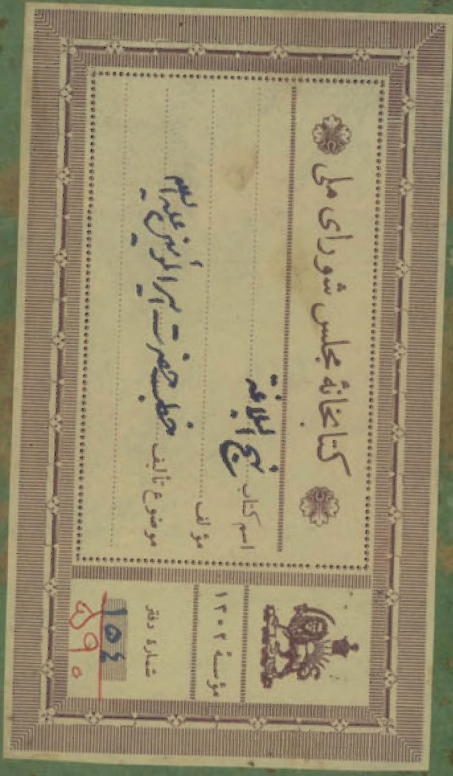 کتابخانهٔ مجلس شورای ملی
اسم کتاب نهج البلاغة
مؤلف
موضوع تألیف خطب حضرت امیرالمؤمنین علیه‌السلام
مؤسسهٔ ۱۳۰۲
شمارهٔ دفتر
۱۵۴
۵۹۰